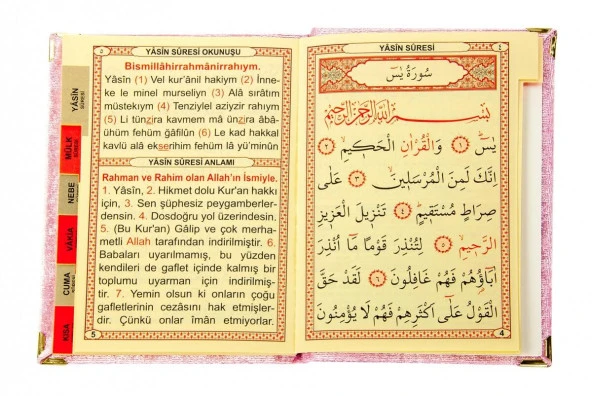 ٥ YÂSÎN SÛRESİ OKUNUŞU
Bismillâhirrahmânirrahıym.
Yâsîn (1) Vel kur'ânil hakiym (2) İnne-
ke le minel murseliyn (3) Alâ sırâtım
müstekıym (4) Tenziylel aziyzir rahıym
(5) Li tünzira kavmem mâ ünzira âbâ-
ühüm fehüm ğâfilûn (6) Le kad hakkal
kavlü alâ ekserihim fehüm lâ yü'minûn
YÂSÎN SÛRESİ ANLAMI
Rahman ve Rahim olan Allah'ın İsmiyle.
1. Yâsîn, 2. Hikmet dolu Kur'an hakkı
için, 3. Sen şüphesiz peygamberler-
densin. 4. Dosdoğru yol üzerindesin.
5. (Bu Kur'an) Gâlip ve çok merha-
metli Allah tarafından indirilmiştir. 6.
Babaları uyarılmamış, bu yüzden
kendileri de gaflet içinde kalmış bir
toplumu uyarman için indirilmiş-
tir. 7. Yemin olsun ki onların çoğu
gafletlerinin cezasını hak etmişler-
dir. Çünkü onlar îmân etmiyorlar.
5
YÂSÎN
SÛRESİ
MÜLK
SÛRESİ
NEBE
VÂKIA
CUMA
KISA
YÂSÎN SÛRESİ ٤
سُورَةُ يٰسٓ
بِسْمِ اللّٰهِ الرَّحْمٰنِ الرَّحِيمِ
يٰسٓ ﴿١﴾ وَالْقُرْاٰنِ الْحَكِيمِۙ ﴿٢﴾
اِنَّكَ لَمِنَ الْمُرْسَلِينَۙ ﴿٣﴾ عَلٰى
صِرَاطٍ مُسْتَقِيمٍۜ ﴿٤﴾ تَنْزِيلَ الْعَزِيزِ
الرَّحِيمِۙ ﴿٥﴾ لِتُنْذِرَ قَوْمًا مَٓا اُنْذِرَ
اٰبَٓاؤُهُمْ فَهُمْ غَافِلُونَ ﴿٦﴾ لَقَدْ حَقَّ
الْقَوْلُ عَلٰٓى اَكْثَرِهِمْ فَهُمْ لَا يُؤْمِنُونَ
4